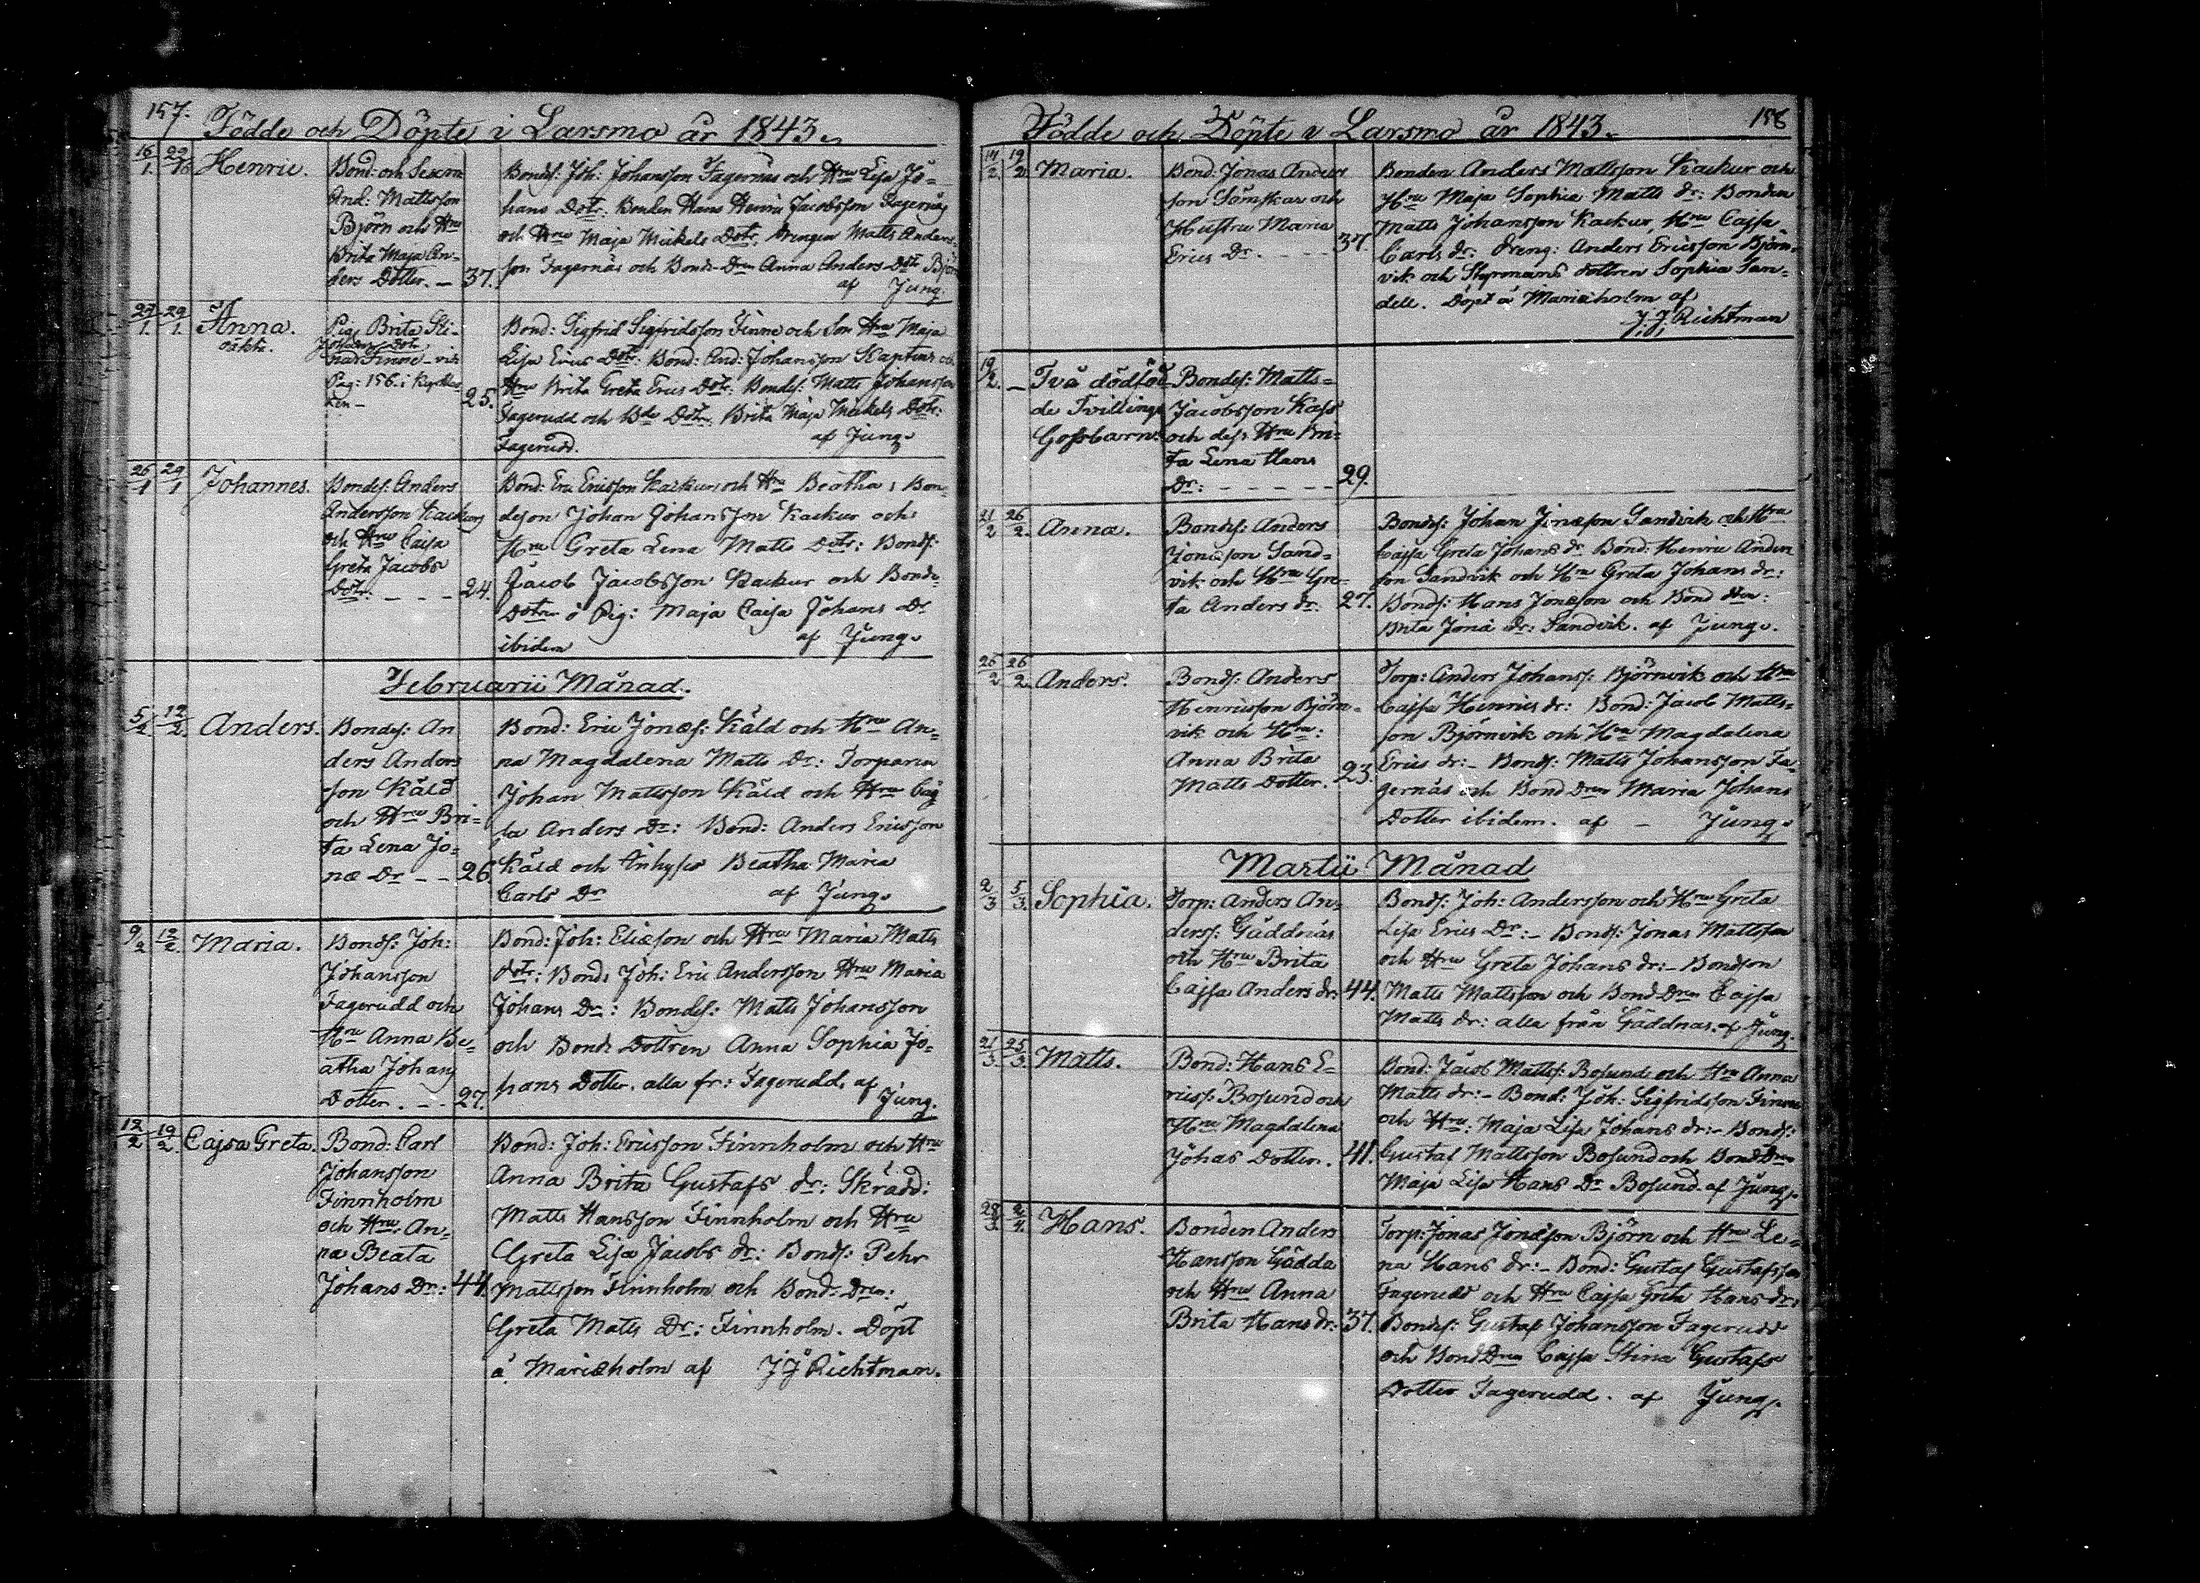 157. Födde och Döpte i Larsmo år 1843.
16/1 22/1 Henric.
Bond: och Sexm
And: Mattsson
Björn och Hru
Brita Maja An-
ders Dotter. — 37.
Bonds: Joh: Johansson Fagernäs och Hru Lisa Jo-
hans Dotr. Bonden Hans Henric Jacobsson Fagernäs
och Hru Maja Mickels Dotr, Drengen Matts Anders-
son Fagernäs och Bond-Drn Anna Anders Dotr Björ
af Jung.
27/1 29/1 Anna.
oäkta.
Pig. Brita Sti-
Johans Dotr.
Finne - vid
Pag: 156. i Kyrkbo-
ken — 25.
Bond: Sigfrid Sigfridsson Finne och Hru Maja
Lisa Erics Dotr: Bond: And: Johansson
Hru Brita Greta Erics Dotr: Bonds: Matts Johansson
Fagerudd och Bde Dotr. Brita Maja Mickels Dotr:
Fagerudd. af Jung.
26/1 29/1 Johannes.
Bonds: Anders
Andersson Kackur
och Hru Caisa
Greta Jacobs
Dotr. - - - 24.
Bond: Eric Ericsson Kackur och Hru Beatha; Bon-
deson Johan Johansson Kackur och
Hru Greta Lena Matts Dotr: Bonds:
Jacob Jacobsson Kackur och Bonde
Dotrn o Pig: Maja Caisa Johans Dr
ibidem af Jung.
Februarii Månad.
5/2 12/2 Anders.
Bonds: An
ders Anders
son Käld
och Hru Bri-
ta Lena Jo-
næ Dr - - 26.
Bond: Eric Jonæs: Käld och Hru An-
na Magdalena Matts Dr: Torparen
Johan Mattsson Käld och Hru Caj
sa Anders Dr: Bond: Anders Ericsson
Käld och Inhyses Beatha Maria
Carls Dr af Jung.
9/2 12/2 Maria.
Bonds: Joh:
Johansson
Fagerudd och
Hru Anna Be-
atha Johans
Dotter. - - 27.
Bond: Joh: Eliæson och Hru Maria Matts
dotr: Bonds Joh: Eric Andersson Hru Maria
Johans Dr: Bonds: Matts Johansson
och Bonds Dottren Anna Sophia Jo-
hans Dotter. alla fr: Fagerudd. af
Jung.
12/2 19/2 Cajsa Greta.
Bond: Carl
Johansson
Finnholm
och Hru: An-
na Beata
Johans Dr: 44.
Bond: Joh: Ericsson Finnholm och Hru
Anna Brita Gustafs dr: Skrädd:
Matts Hansson Finnholm och Hru
Greta Lisa Jacobs dr: Bonds: Pehr
Mattsson Finnholm och Bond-Drn:
Greta Matts Dr: Finnholm. Döpt
å Mariæholm af J J Richtman.
Födde och Döpte i Larsmo år 1843. 158
14/2 19/2 Maria.
Bond: Jonas Anders
son Sämskar och
Hustru Maria
Erics Dr. - - - 37.
Bonden Anders Mattsson Kackur och
Hru Maja Sophia Matts dr: Bonden
Matts Johansson Kackur, Hru Cajsa
Carls dr: Dreng: Anders Ericsson Björn-
vik och Styrmans dottren Sophia San-
dell. Döpt å Mariæholm af
J. J. Richtman
19/2 — Två dödföd
de Tvillings
Gossbarn.
Bonds: Matts-
Jacobsson Kass
och dess Hru Bri-
ta Lena Hans
Dr: - - - - - 29.
21/2 26/2 Anna.
Bonds: Anders
Jonæson Sand-
vik och Hru Gre-
ta Anders dr: 27.
Bonds: Johan Jonæson Sandvik och Hru
Cajsa Greta Johans dr Bond: Henric Anders
son Sandvik och Hru Greta Johans dr:
Bonds: Hans Jonæson och Bond drn:
Brita Jonæ dr: Sandvik. af Jung.
26/2 26/2 Anders.
Bonds: Anders
Henricsson Björn-
vik och Hru:
Anna Brita
Matts Dotter. 23.
Torp: Anders Johanss: Björnvik och Hru
Cajsa Henrics dr: Bond: Jacob Matts-
son Björnvik och Hru Magdalena
Erics dr: - Bonds: Matts Johansson Fa-
gernäs och Bond Drn Maria Johans
Dotter ibidem. af - Jung.
Martii Månad
2/3 5/3 Sophia.
Torp: Anders An-
derss: Gäddnäs
och Hru Brita
Cajsa Anders dr: 44.
Bonds: Joh: Andersson och Hru Greta
Lisa Erics Dr: - Bonds: Jonas Mattsson
och Hru Greta Johans dr: - Bondson
Matts Mattsson och Bond Drn Cajsa
Matts dr: alla från Gäddnäs. af Jung.
21/3 25/3 Matts.
Bond: Hans E-
ricss: Bosund och
Hru Magdalena
Johas Dotter. 41.
Bond: Jacob Mattss: Bosund och Hru Anna
Matts dr: - Bond: Joh: Sigfridsson Finne
och Hru: Maja Lisa Johans dr: - Bonds:
Gustaf Mattsson Bosund och Bond Drn
Maja Lisa Hans Dr Bosund. af Jung.
28/3 2/4 Hans.
Bonden Anders
Hansson Gädda
och Hru Anna
Brita Hans dr: 37.
Torp: Jonas Jonæson Björn och Hru Le-
na Hans dr: - Bond: Gustaf Gustafsson
Fagerudd och Hru Cajsa Greta Hans dr:
Bonds: Gustaf Johansson Fagerudd
och Bond Drn Cajsa Stina Gustafs
Dotter Fagerudd. af Jung.